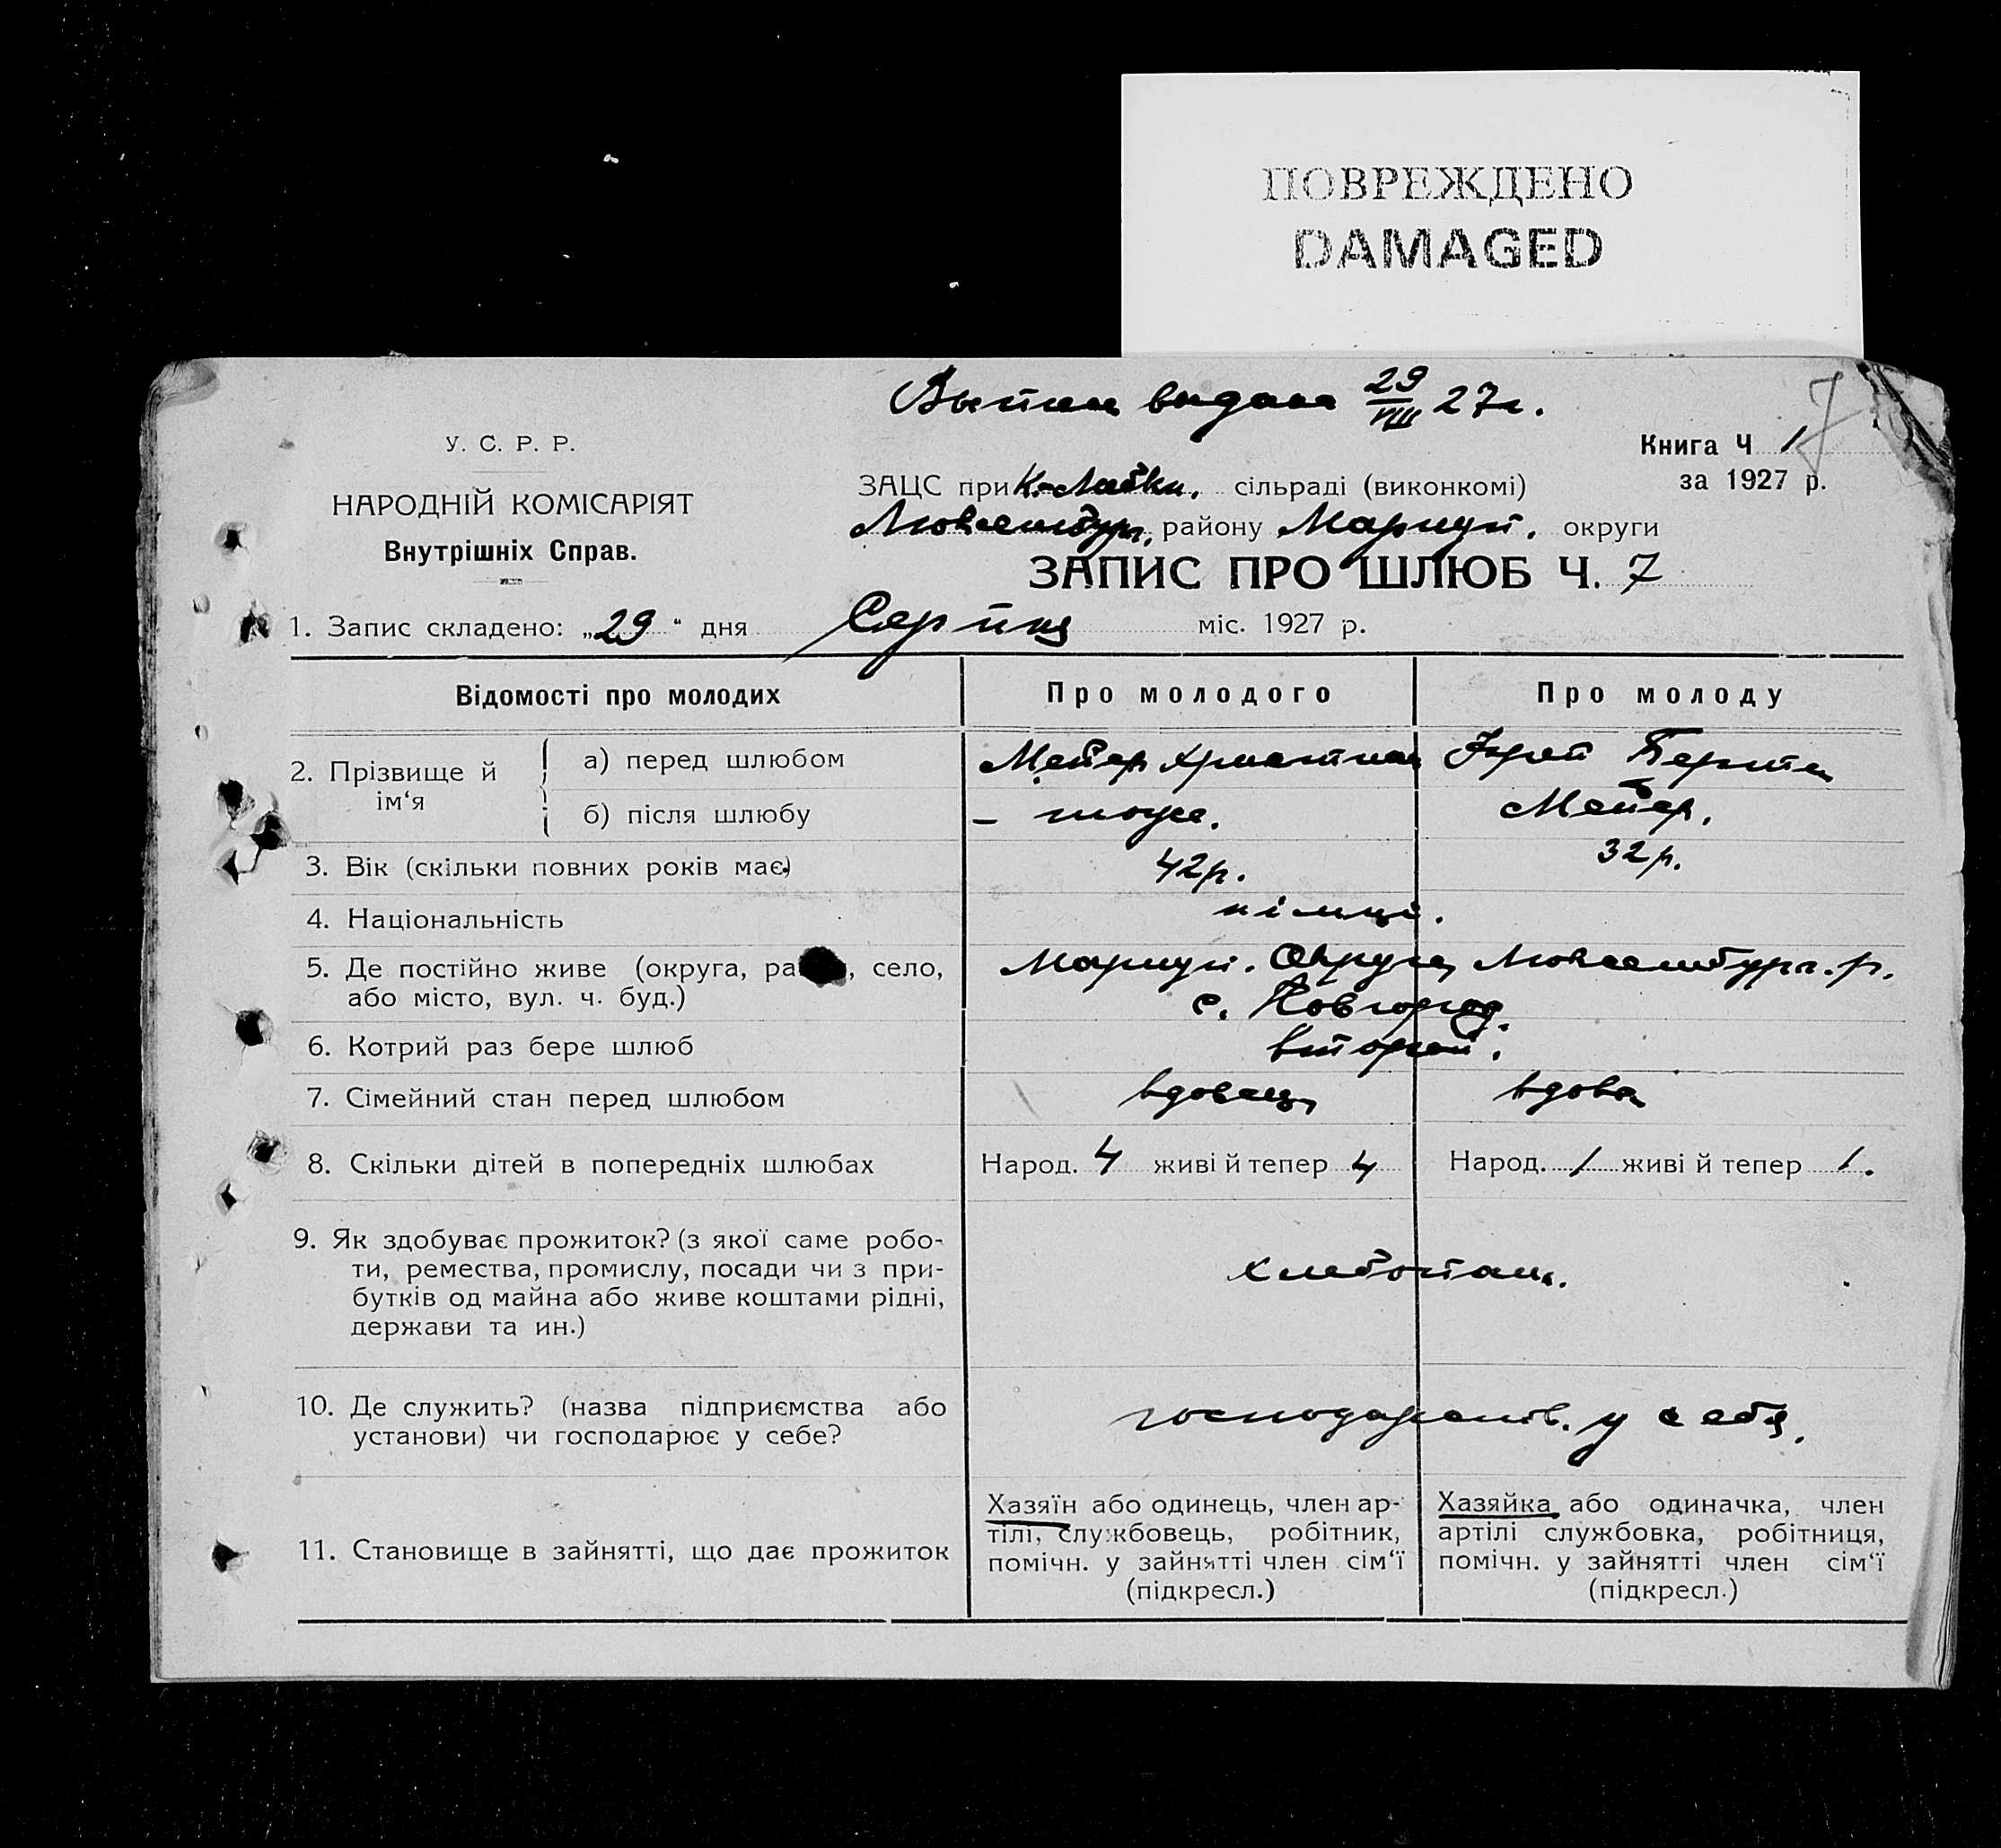 ПОВРЕЖДЕНО
DAMAGED
видана 29/VIII 27г.
У. С. Р. Р.
Книга Ч 1 7
НАРОДНІЙ КОМІСАРІЯТ
ЗАЦС при К.-Лайки. сільраді (виконкомі)
за 1927 р.
Внутрішніх Справ.
Люксембург. району Мариуп. округи
ЗАПИС ПРО ШЛЮБ Ч. 7
1. Запис складено: „29“ дня Серпня міс. 1927 р.
Відомості про молодих Про молодого Про молоду
2. Прізвище й ім‘я а) перед шлюбом Мейер Христиан Берта
б) після шлюбу – тоже. Мейер.
3. Вік (скільки повних років має) 42р. 32р.
4. Національність німці.
5. Де постійно живе (округа, ра , село, Мариуп. Округа, Люксембург. р.
або місто, вул. ч. буд.) с. Новгород.
6. Котрий раз бере шлюб второй.
7. Сімейний стан перед шлюбом вдовець вдова
8. Скільки дітей в попередніх шлюбах Народ. 4 живі й тепер 4 Народ. 1 живі й тепер 1.
9. Як здобуває прожиток? (з якої саме робо-
ти, ремества, промислу, посади чи з при- хлебопаш.
бутків од майна або живе коштами рідні,
держави та ин.)
10. Де служить? (назва підприємства або
установи) чи господарює у себе? у себя.
11. Становище в зайнятті, що дає прожиток
Хазяїн або одинець, член ар-
тілі, службовець, робітник,
помічн. у зайнятті член сім‘ї
(підкресл.)
Хазяйка або одиначка, член
артілі службовка, робітниця,
помічн. у зайнятті член сім‘ї
(підкресл.)